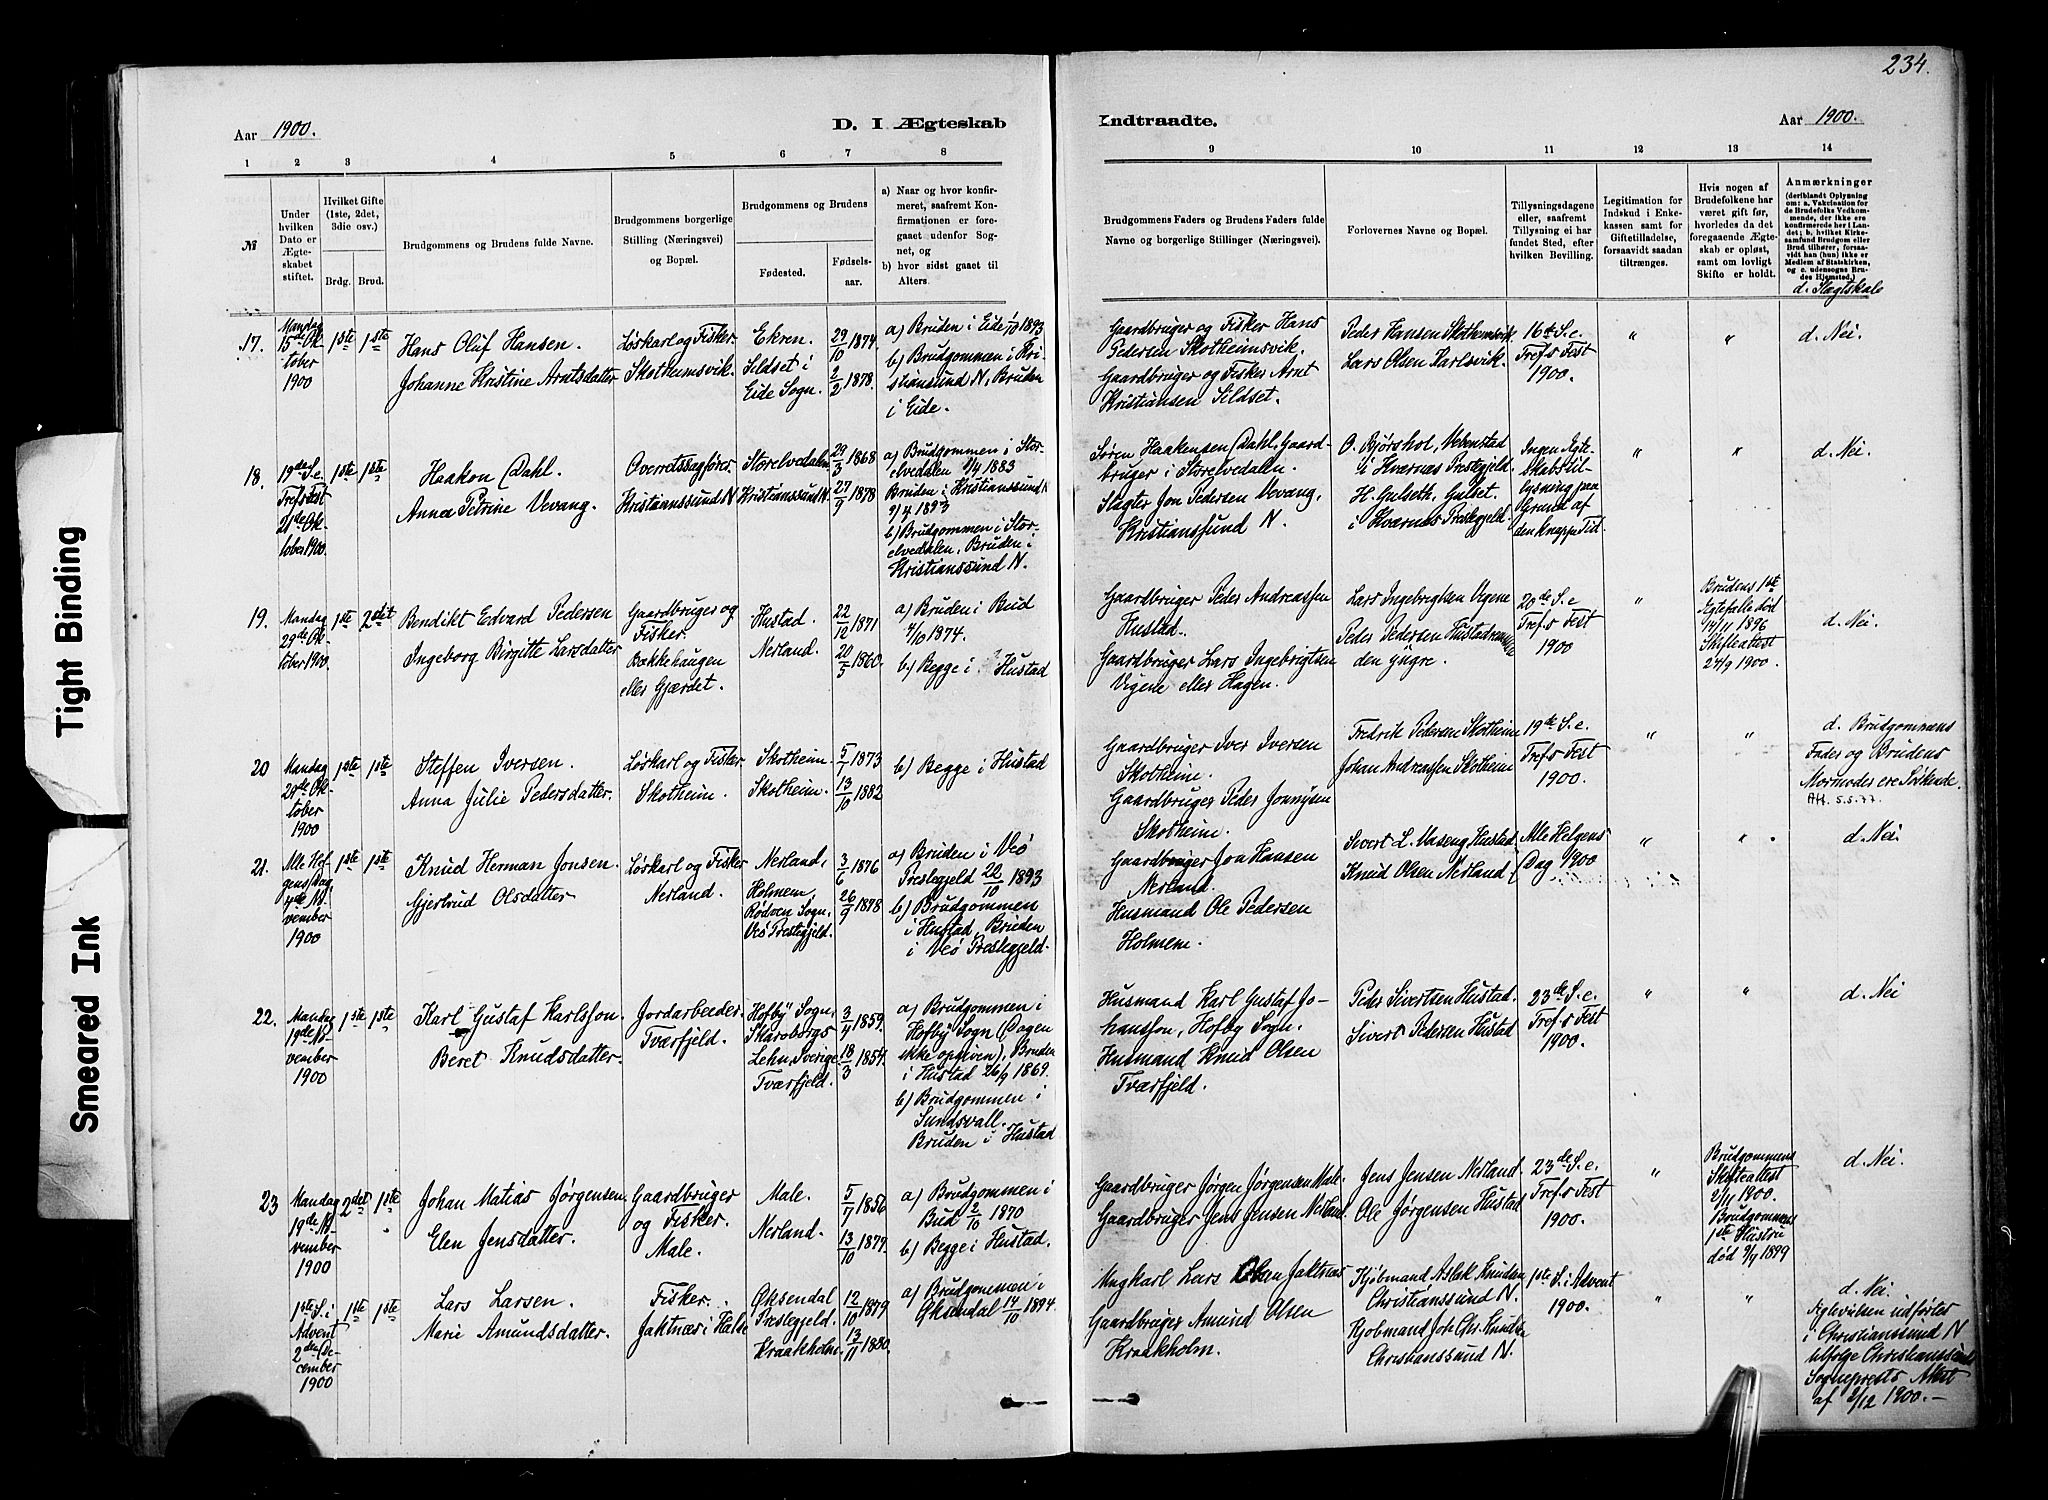 234.
Aar 1900.
D. I Ægteskab
Indtraadte.
Aar 1900.
1 2 3 4 5 6 7 8
9 10 11 12 13 14
№
Under hvilken Dato er Ægteskabet stiftet.
Hvilket Gifte (1ste, 2det, 3die osv.)
Brdg. Brud.
Brudgommens og Brudens fulde Navne.
Brudgommens borgerlige Stilling (Næringsvei) og Bopæl.
Brudgommens og Brudens
Fødested.
Fødselsaar.
a) Naar og hvor konfirmeret, saafremt Konfirmationen er foregaaet udenfor Sognet, og
b) hvor sidst gaaet til Alters.
Brudgommens Faders og Brudens Faders fulde Navne og borgerlige Stillinger (Næringsvei).
Forlovernes Navne og Bopæl.
Tillysningsdagene eller, saafremt Tillysning ei har fundet Sted, efter hvilken Bevilling.
Legitimation for Indskud i Enkekassen samt for Giftetilladelse, forsaavidt saadan tiltrænges.
Hvis nogen af Brudefolkene har været gift før, hvorledes da det foregaaende Ægteskab er opløst, samt om lovligt Skifte er holdt.
Anmærkninger
(deriblandt Oplysning om: a. Vakcination for de Brudefolks Vedkommende, der ikke ere konfirmerede her i Landet; b. hvilket Kirkesamfund Brudgom eller Brud tilhører, forsaavidt han (hun) ikke er Medlem af Statskirken, og c. udensogns Brudes Hjemsted.)
d. Slægtskab
17.
Mandag 15de Oktober 1900
1ste 1ste
Hans Oluf Hansen.
Johanne Kristine Arntsdatter
Løskarl og Fisker
Skotheimsvik.
Ekren.
Sildset i Eide Sogn.
29/10 1874.
2/2 1878.
a) Bruden i Eide 1/10 1893
b) Brudgommen i Kristianssund N, Bruden i Eide.
Gaardbruger og Fisker Hans Pedersen Skotheimsvik.
Gaardbruger og Fisker Arnt Kristiansen Sildset.
Peder Hansen Skotheimsvik
Lars Olsen Karlsvik.
16de S. e. Tref.s Fest 1900.
" "
d. Nei.
18.
19de S. e. Tref.s Fest 21de Oktober 1900.
1ste 1ste
Haakon Dahl.
Anna Petrine Vevang.
Overretssagfører
Kristianssund N
Storelvedalen
Kristianssund N.
29/3 1868
27/9 1878
a) Brudgommen i Storelvedalen 1883
Bruden i Kristianssund N 9/4 1893
b) Brudgommen i Storelvedalen, Bruden i Kristianssund N.
Søren Haakensen Dahl, Gaardbruger i Storelvedalen.
Slagter Jon Pedersen Vevang, Kristianssund N.
O. Bjørshol, Vebenstad i Kværnæs Prestegjeld.
H. Gulseth, Gulset i Kværnæs Prestegjeld.
Ingen Ægteskabstillysning paa Grund af den knappe Tid.
" "
d. Nei.
19.
Mandag 29de Oktober 1900
1ste 2det
Bendikt Edvard Pedersen
Ingeborg Birgitte Larsdatter
Gaardbruger og Fisker.
Bækkehaugen eller Gjærdet.
Hustad.
Nerland.
22/12 1871
20/5 1860.
a) Bruden i Bud 4/10 1874.
b) Begge i Hustad
Gaardbruger Peder Andreassen Hustad.
Gaardbruger Lars Ingebrigtsen Vigene eller Hagen.
Lars Ingebrigtsen Vigene
Peder Pedersen den yngre.
20de S. e. Tref.s Fest 1900
"
Brudens 1ste Ægtefælle død 14/11 1896
Skifteattest 24/9 1900.
d. Nei.
20
Mandag 29de Oktober 1900
1ste 1ste
Steffen Iversen.
Anna Julie Pedersdatter.
Løskarl og Fisker
Skotheim.
Skotheim.
Skotheim.
5/1 1873
13/10 1882
b) Begge i Hustad
Gaardbruger Iver Iversen Skotheim.
Gaardbruger Peder Jonnysen Skotheim.
Fredrik Pedersen Skotheim
Johan Andreassen Skotheim
19de S. e. Tref.s Fest 1900.
" "
d. Brudgommens Fader og Brudens Mormoder ere Søskende.
AH. 5.5.77.
21.
Alle Helgens Dag 4de November 1900
1ste 1ste
Knud Herman Jonsen.
Gjertrud Olsdatter
Løskarl og Fisker
Nerland.
Nerland,
Holmem, Rødven Sogn, Veø Prestegjeld.
3/6 1876
26/9 1878
a) Bruden i Veø Prestegjeld 22/10 1893
b) Brudgommen i Hustad, Bruden i Veø Prestegjeld.
Gaardbruger Jon Hansen Nerland.
Husmand Ole Pedersen Holmem.
Sivert L. Vaseng Hustad
Knud Olsen Nerland
Alle Helgens Dag 1900
" "
d. Nei.
22.
Mandag 19de November 1900
1ste 1ste
Karl Gustaf Karlsson.
Beret Knudsdatter.
Jordarbeider
Tværfjeld.
Hofby Sogn, Skaraborgs Lehn, Sverige
Tværfjeld.
3/4 1859.
18/3 1854.
a) Brudgommen i Hofby Sogn (Dagen ikke opgiven), Bruden i Hustad 26/9 1869.
b) Brudgommen i Sundsvall. Bruden i Hustad
Husmand Karl Gustaf Johansson, Hofby Sogn.
Husmand Knud Olsen Tværfjeld.
Peder Sivertsen Hustad.
Sivert Pedersen Hustad
23de S. e. Tref.s Fest 1900.
" "
d. Nei
23
Mandag 19de November 1900
2det 1ste
Johan Matias Jørgensen.
Elen Jensdatter.
Gaardbruger og Fisker.
Male.
Male.
Nerland.
5/7 1856
13/10 1879.
a) Brudgommen i Bud 2/10 1870
b) Begge i Hustad.
Gaardbruger Jørgen Jørgensen Male.
Gaardbruger Jens Jensen Nerland.
Jens Jensen Nerland.
Ole Jørgensen Hustad
23de S. e. Tref.s Fest 1900.
"
Brudgommens Skifteattest 2/11 1900.
Brudgommens 1ste Hustru død 9/4 1899
d. Nei.
1ste S. i Advent 2den December 1900
1ste 1ste
Lars Larsen.
Marie Amundsdatter.
Fisker.
Jaktnæs i Halse
Øksendal Prestegjeld.
Kraakholm.
12/10 1879
13/11 1880.
a) Brudgommen i Øksendal 14/10 1894.
Ungkarl Lars Olsen Jaktnæs
Gaardbruger Amund Olsen Kraakholm.
Kjøbmand Aslak Knudsen Christianssund N.
Kjøbmand Joh. Chr. Knudsen Christianssund N.
1ste S. i Advent 1900.
" "
d. Nei.
Ægtevielsen udførtes i Christianssund N tilfølge Christianssunds Sogneprests Attest af 2/12 1900.-
Tight Binding
Smeared Ink